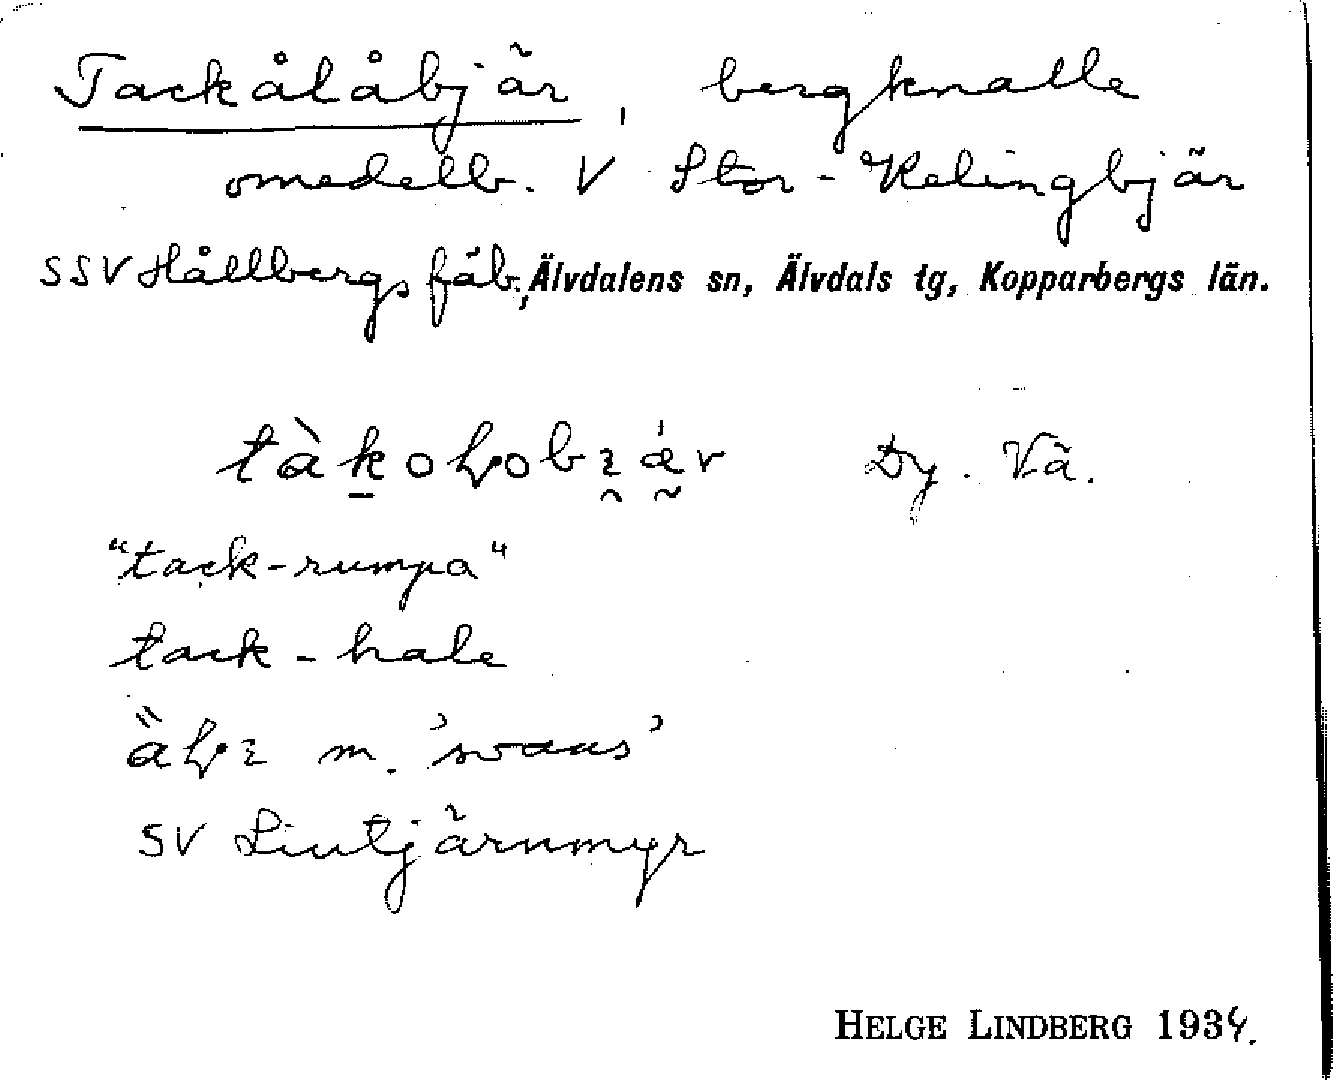 Tackålåbjär, bergknalle
omedelb. V Stor-Kelingbjär
SSV Hållbergs fäb., Älvdalens sn, Älvdals tg, Kopparbergs län.
Dy. Vä.
"tack-rumpa"
tack-hale
m. 'svans'
SV Lintjärnmyr
HELGE LINDBERG 1934.